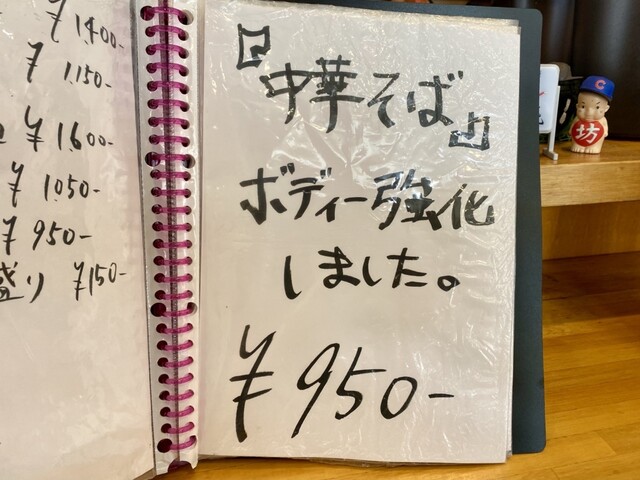 ¥1,400-
¥1,150-
¥1,600-
¥1,050-
¥950-
盛り ¥150-
『中華そば』
ボディー強化
しました。
¥950-
坊
C